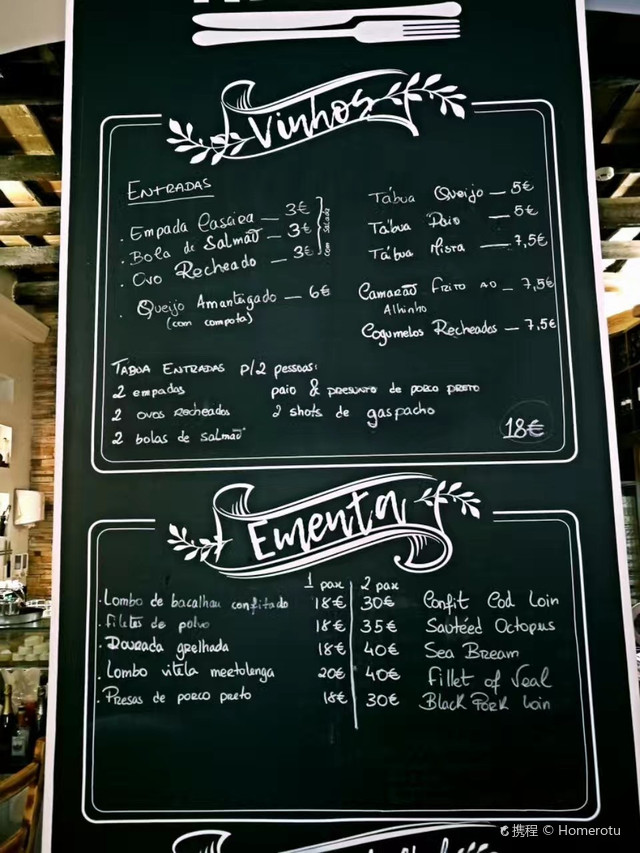 Vinhos
ENTRADAS
. Empada Casseira — 3€
. Bola de Salmão — 3€
. Ovo Recheado — 3€
com Salada
. Queijo Amanteigado — 6€
(com compota)
Tábua Queijo — 5€
Tábua Paio — 5€
Tábua Mista — 7,5€
Camarão Frito ao — 7,5€
Alhinho
Cogumelos Recheados — 7,5€
TÁBUA ENTRADAS p/2 pessoas:
2 empadas
2 ovos Recheados
2 bolas de salmão
paio & presunto de porco preto
2 shots de gaspacho
18€
Ementa
1 pax 2 pax
. Lombo de bacalhau confitado 18€ 30€ Confit Cod Loin
. Filetes de polvo 18€ 35€ Sautéed Octopus
. Dourada grelhada 18€ 40€ Sea Bream
. Lombo vitela mertolenga 20€ 40€ Fillet of Veal
. Presas de porco preto 18€ 30€ Black Pork Loin
携程 © Homerotu